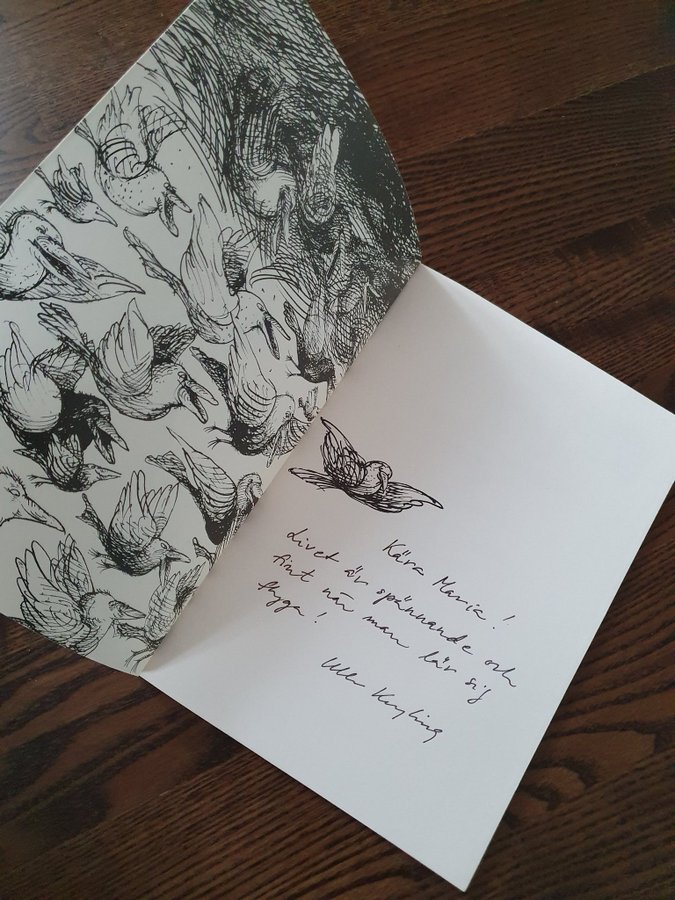 Kära Maria!
Livet är spännande och
fint när man lär sig
flyga!
Ulla